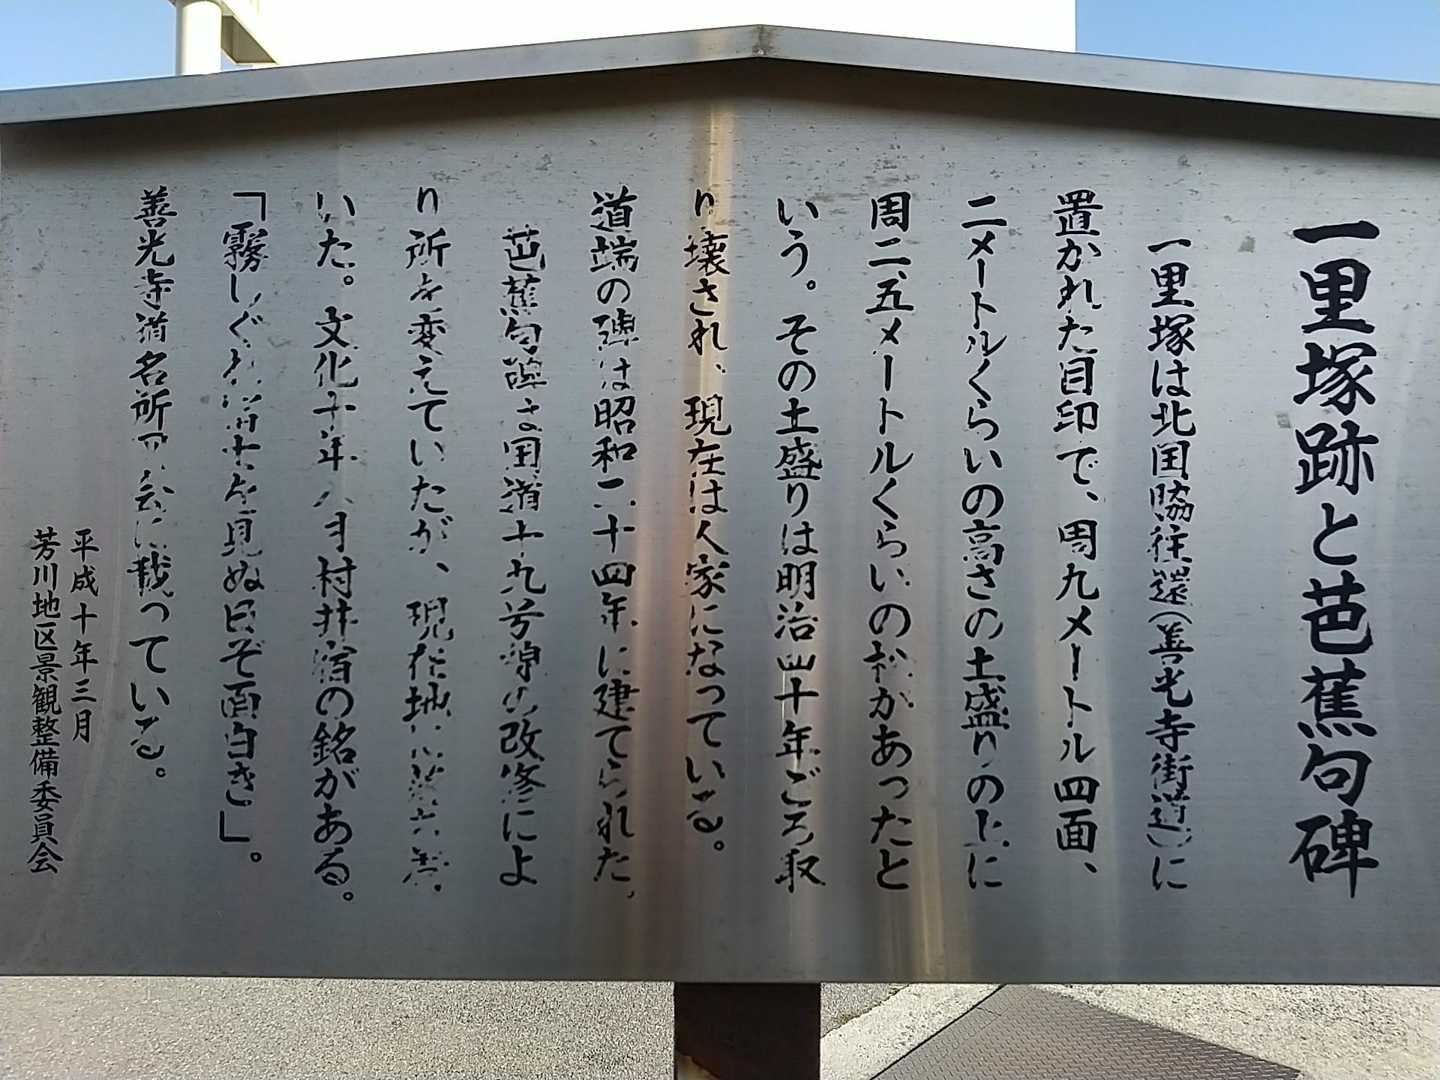 一里塚跡と芭蕉句碑
一里塚は北国脇往還(善光寺街道)に
置かれた目印で、周九メートル四面、
二メートルくらいの高さの土盛りの上に
周二、五メートルくらいの松があったと
いう。その土盛りは明治四十年ごろ取
り壊され、現在は人家になっている。
道端の碑は昭和二十四年に建てられた。
芭蕉句碑は国道十九号線の改修によ
り所を変えていたが、現在地に落
いた。文化十年八月村井宿の銘がある。
「霧しぐれ富士を見ぬ日ぞ面白き」。
善光寺道名所図会に載っている。
平成十年三月
芳川地区景観整備委員会